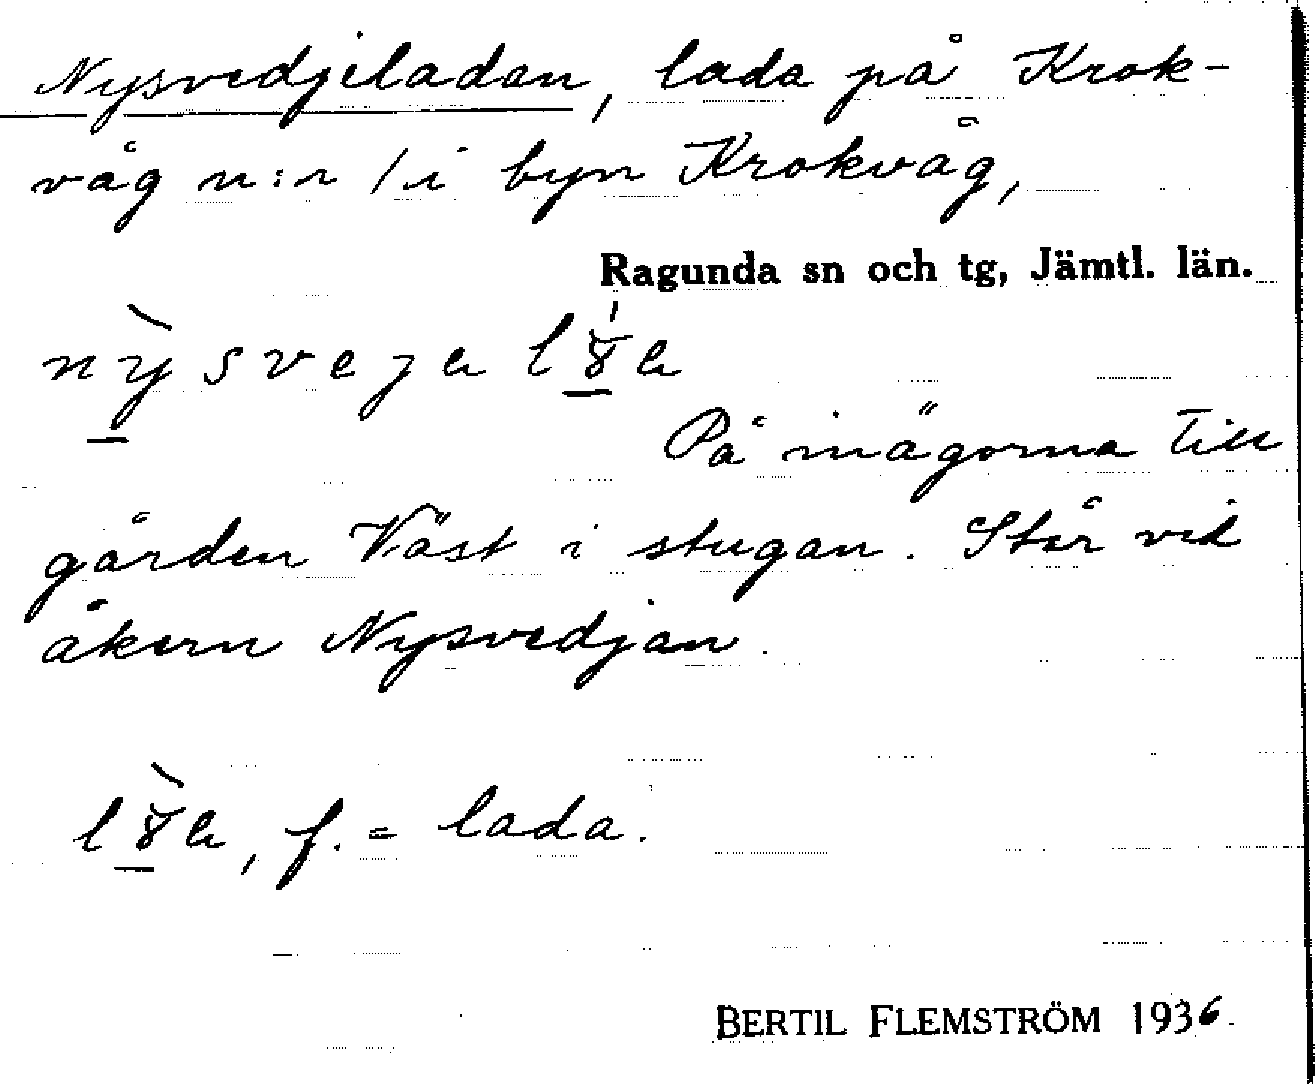 Nysvedjeladan, lada på Krok-
våg n:r 1 i byn Krokvåg,
Ragunda sn och tg, Jämtl. län.
På inägorna till
gården Väst i stugan. Står vid
åkern Nysvedjan.
f. = lada.
BERTIL FLEMSTRÖM 1936